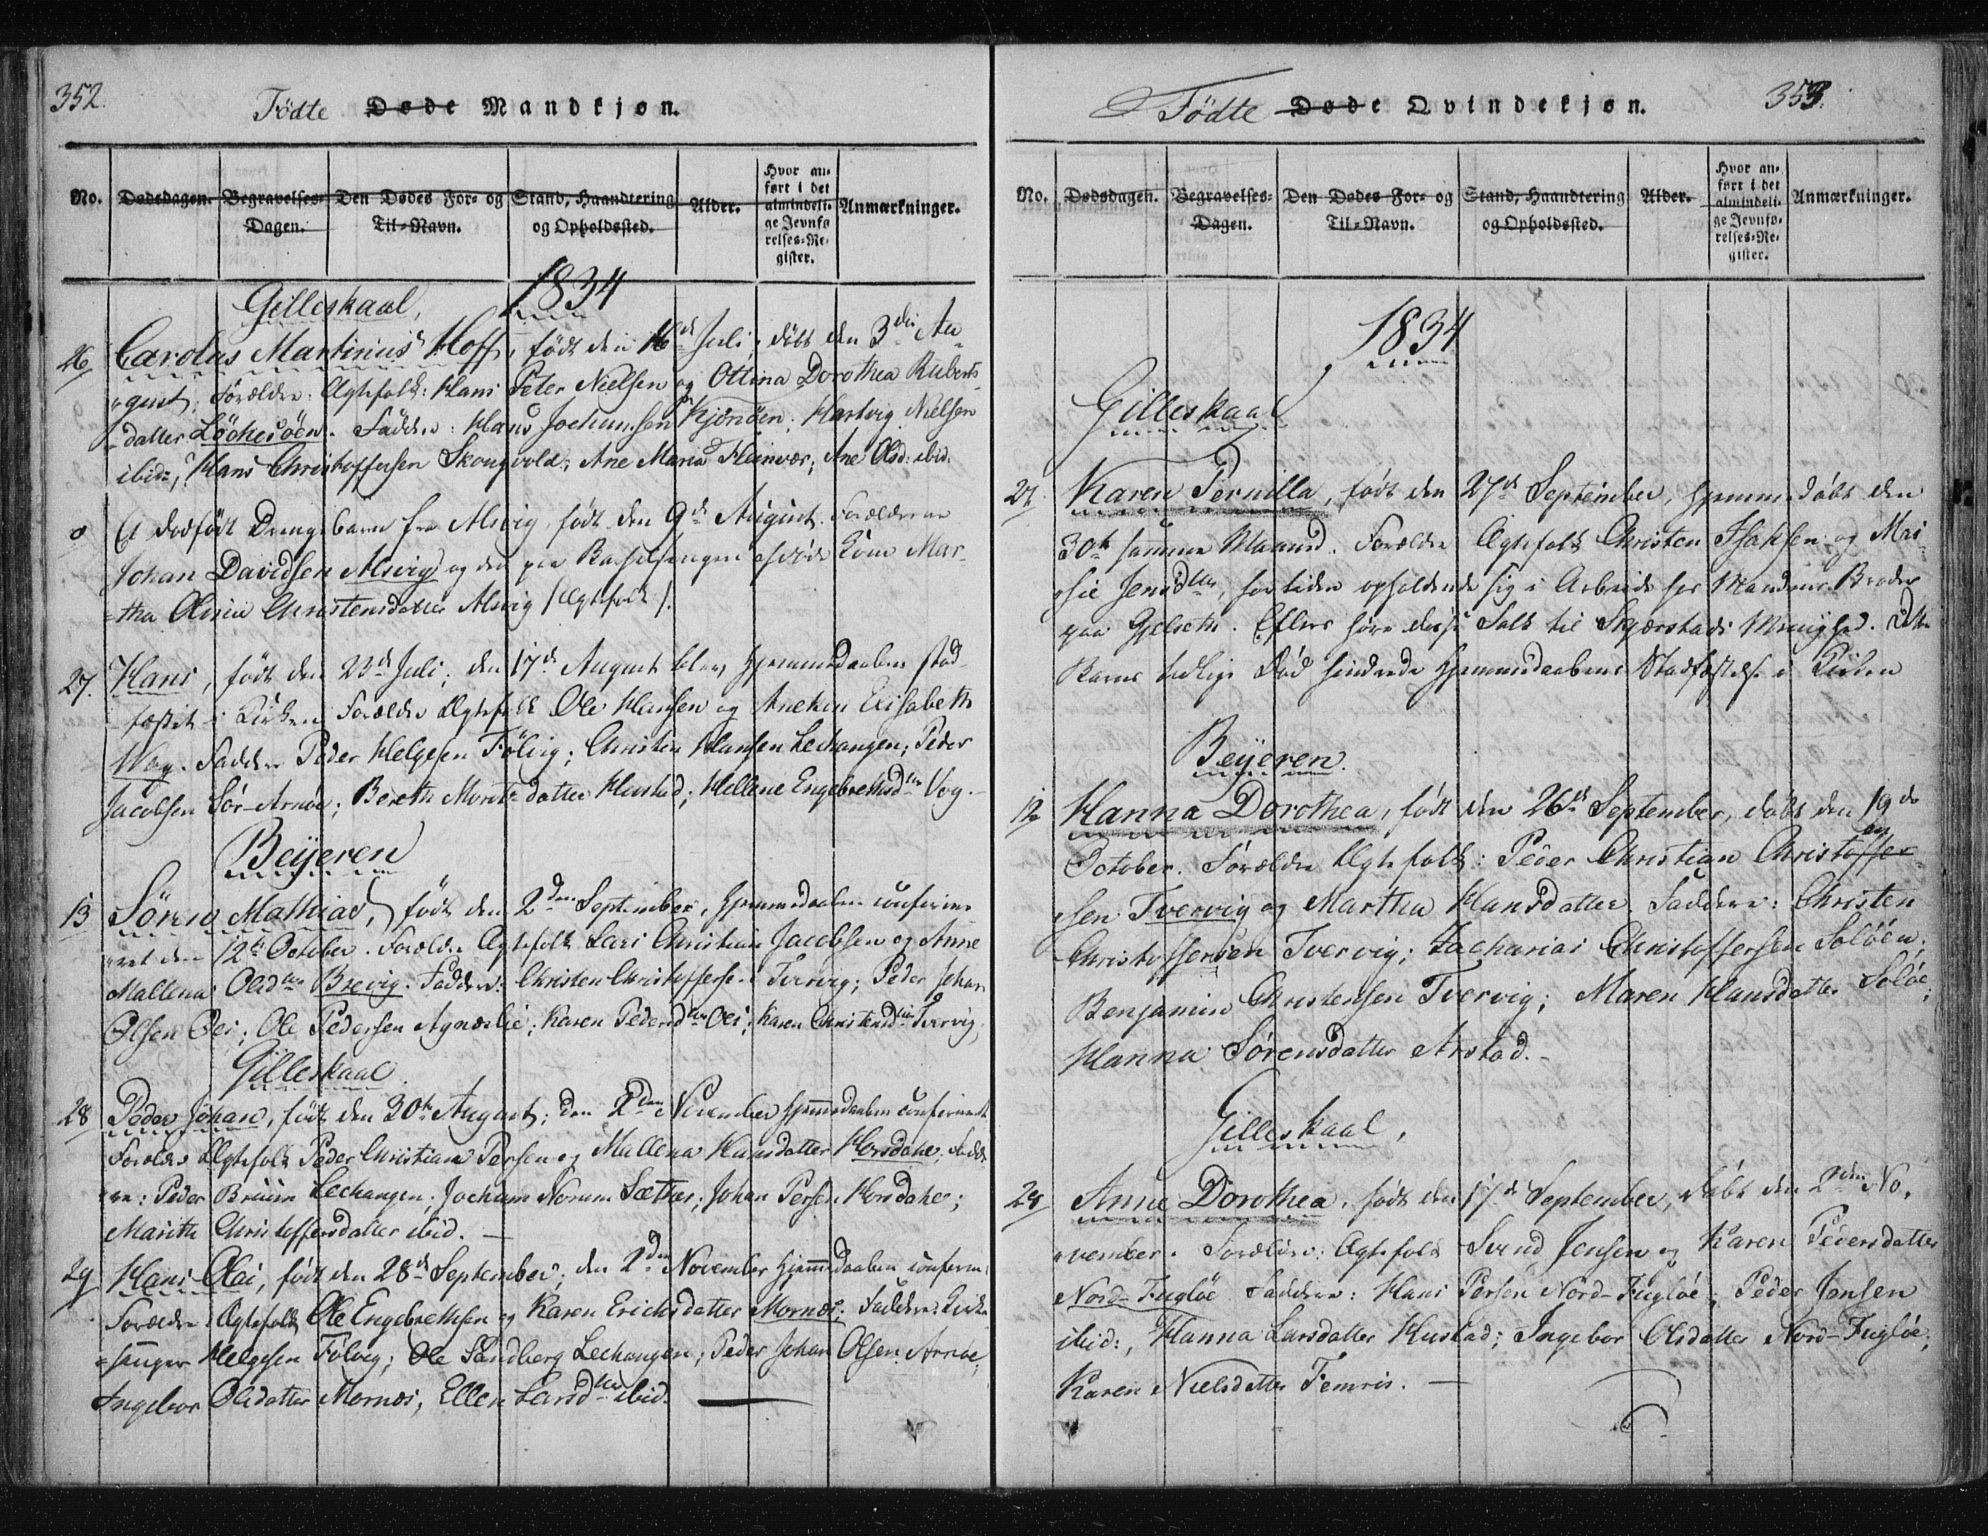 352.
Födte Døde Mandkjøn.
No. Dødsdagen. Begravelses-Dagen. Den Dødes For- og Til-Navn. Stand, Haandtering og Opholdssted. Alder. Hvor anført i det almindelige Jevnførelses-Register. Anmærkninger.
1834
Gilleskaal,
26 Carolus Martinius Hoff, født den 16d Juli, døbt den 3die Au-
gust, Forældre: Ægtefolk: Hans Peter Nielsen og Ottina Dorothea Ruberts-
datter Löckesöen. Faddre: Hans Jochumsen Kjönöen; Hartvig Nielsen
ibid:, Hans Christoffersen Skougvold; Ane Maria Fleinvær; Ane Olsd: ibid.
0 Et dødfødt Drengebarn fra Alsvig, født den 9de August. Forældrene
Johan Davidsen Alsvig og den paa Barselsengen afdøde Kone Mar-
tha Olivia Christensdatter Alsvig /Ægtefolk/.
27. Hans, født den 23d Juli; den 17d August blev Hjemmedaaben stad-
fæstet i Kirken. Forældre Ægtefolk Ole Hansen og Aneken Elisabeth
Wog. Faddre Peder Helgesen Fölvig; Christen Hansen Lechangen; Peder
Jacobsen Sör-Arnöe; Bereth Moritsdatter Hustad; Hellene Engebrethsdtr Vog.
Beyeren
13 Sören Mathias, født den 2den September, Hjemmedaaben confirme-
ret den 12te October. Forældre Ægtefolk Lars Christian Jacobsen og Anne
Mallena Olsdtr Brevig. Faddere: Christen Christoffersen Tvervig; Peder Johan
Olsen Oei; Ole Pedersen Agnælie; Karen Pedersdtr Oei; Karen Christensdtr Tvervig.
Gilleskaal.
28 Peder Johan, født den 30te August; den 2den November Hjemmedaaben confirmeret
Forældre Ægtefolk Peder Christian Persen og Mallena Hansdatter Horsdahl; Fadd-
re: Peder Bruun Lechangen; Jochum Norum Sæther; Johan Persen Horsdahl;
Marith Christoffersdatter ibid. —
29 Hans Olai, født den 28de September; den 2den November Hjemmedaaben confirm.
Forældre: Ægtefolk Ole Engebrethsen og Karen Erichsdatter Mornæs; Faddere: Kirke-
sanger Helgesen Fölvig; Ole Sandberg Lechangen; Peder Johan Olsen Arnöe;
Ingebor Olsdatter Mornæs, Ellen Larsdtr ibid. —
353.
Födte Døde Qvindekjøn.
No. Dødsdagen. Begravelses-Dagen. Den Dødes For- og Til-Navn. Stand, Haandtering og Opholdssted. Alder. Hvor anført i det almindelige Jevnførelses-Register. Anmærkninger.
1834
Gilleskaal
27. Karen Pernilla, født den 27de September, hjemmedøbt den
30te samme Maaned. Forældre Ægtefolk Christen Isaksen og Mari-
thie Jensdtr, for tiden opholdende sig i Arbeide hos Mandens Broder
paa Gjelseth. Ellers høre disse Folk til Skjerstads Menighed. Dette
Barns tidlige Død hindrede Hjemmedaabens Stadfæstelse i Kirken
Beyeren.
12 Hanna Dorothea, født den 26de September, døbt den 19de
October. Forældre Ægtefolk: Peder Christian Christoffer-
sen Tvervig og Martha Hansdatter. Faddere: Christen
Christoffersen Tvervig; Zacharias Christoffersen Solöen;
Benjamin Christensen Tvervig; Maren Hansdatter Solöe;
Hanna Sörensdatter Arstad. —
Gilleskaal,
28 Anne Dorothea, født den 17de September, døbt den 2den No-
vember. Forældre: Ægtefolk Svend Jensen og Karen Pedersdatter
Nord-Fuglöe Faddere: Hans Persen Nord-Fuglöe; Peder Jensen
ibid:, Hanna Larsdatter Hustad; Ingebor Olsdatter Nord-Fuglöe;
Karen Nielsdatter Femris. —